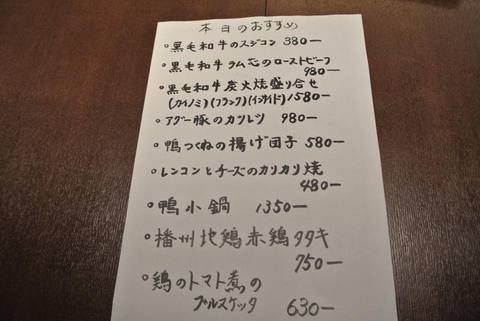 本日のおすすめ
○黒毛和牛のスジコン 380ー
○黒毛和牛ラム芯のローストビーフ
980ー
○黒毛和牛炭火焼盛り合せ
(カイノミ)(フランク)(インサイド) 1580ー
○アグー豚のカツレツ 980ー
○鴨つくねの揚げ団子 580ー
○レンコンとチーズのカリカリ焼
480ー
○鴨小鍋 1350ー
○播州地鶏赤鶏タタキ
750ー
○鶏のトマト煮の
ブルスケッタ 630ー